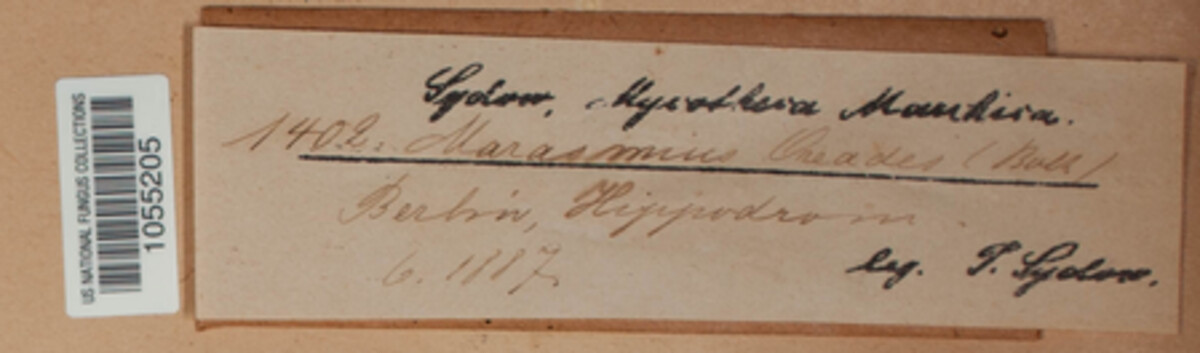 US NATIONAL FUNGUS COLLECTIONS
1055205
Sydow, Mycotheca Marchica.
1402. Marasmius Oreades (Bolt)
Berlin, Hippodrom.
6. 1887.
leg. P. Sydow.